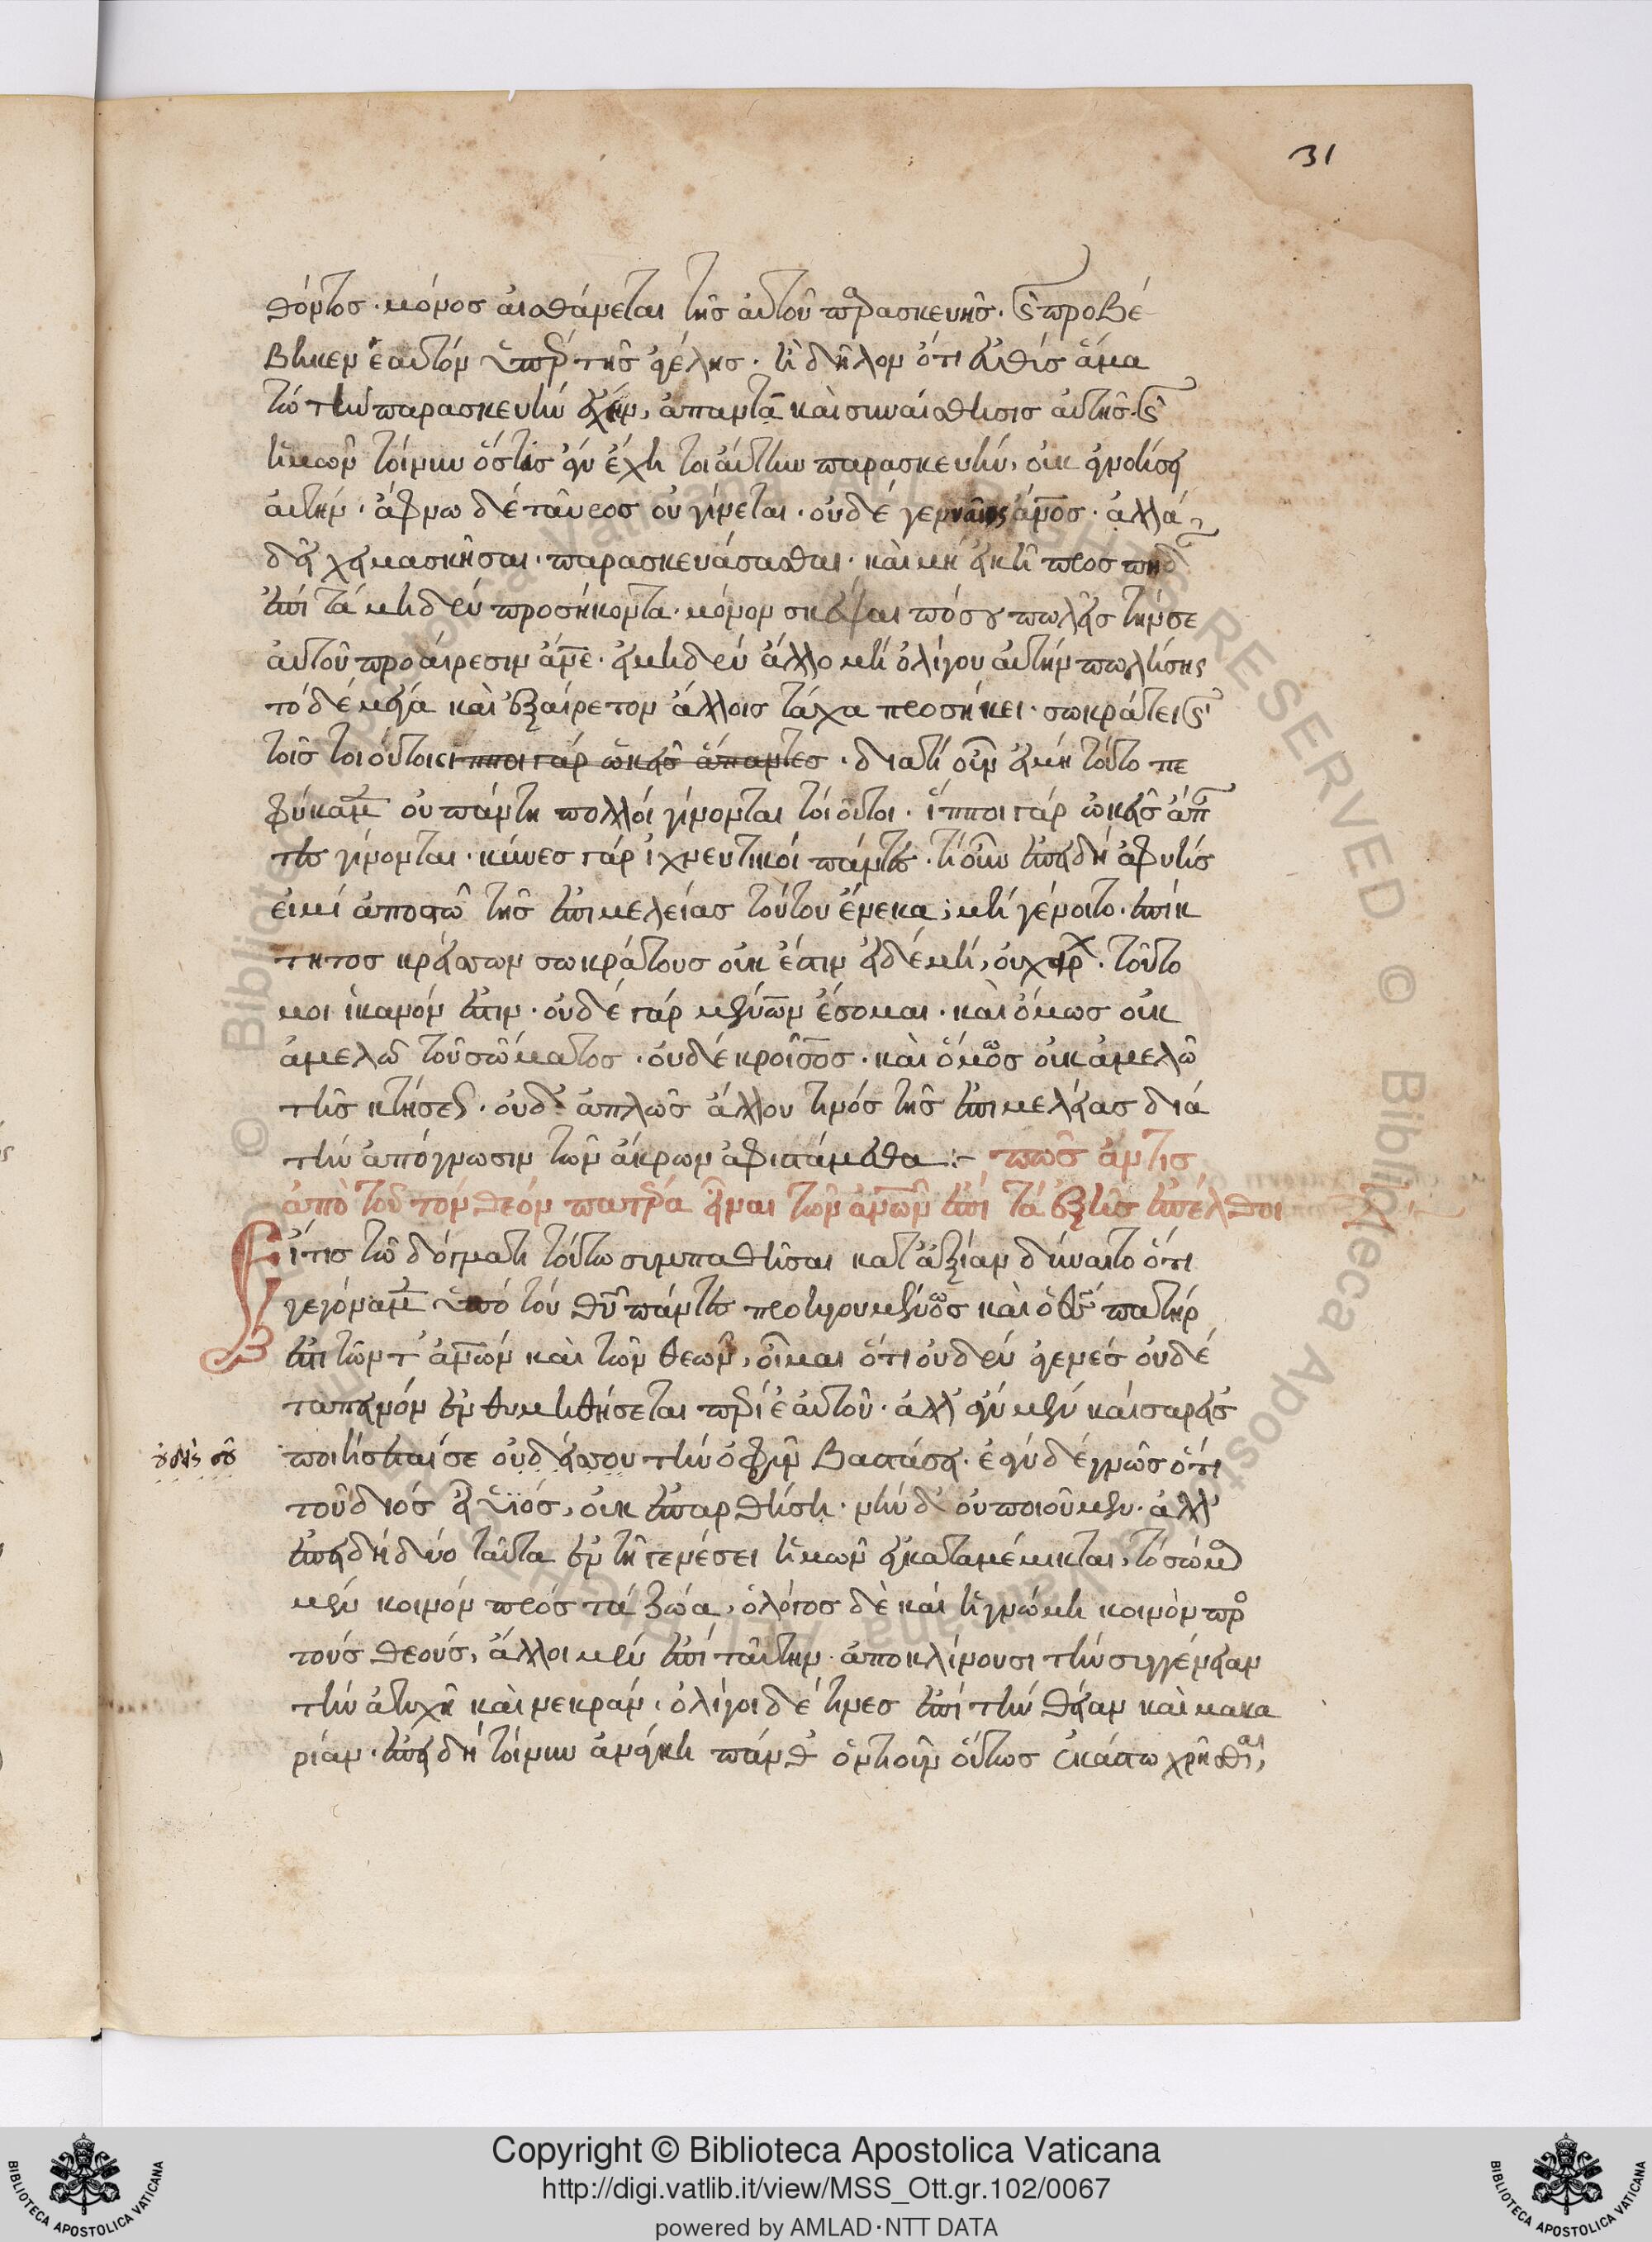 31
θόντος· μόνος αἰσθάνεται τῆς αὐτοῦ παρασκευῆς· καὶ προβέ
βληκεν ἑαυτὸν ὑπὲρ τῆς ἀγέλης· ἢ δῆλον ὅτι εὐθὺς ἅμα
τῷ τὴν παρασκευὴν ἔχειν, ἀπαντᾷ καὶ συναίσθησις αὐτῆς· καὶ
ἡμῶν τοίνυν ὅστις ἂν ἔχῃ τοιαύτην παρασκευήν, οὐκ ἀγνοήσει
αὐτήν· ἄφνω δὲ ταῦρος οὐ γίνεται· οὐδὲ γενναῖος ἄνος· ἀλλὰ
δεῖ χειμασκῆσαι· παρασκευάσασθαι· καὶ μὴ εἰκῇ προσπηδᾶν
ἐπὶ τὰ μηδὲν προσήκοντα· μόνον σκέψαι πόσου πωλεῖς τήν σε
αὐτοῦ προαίρεσιν ἄνε· εἰ μηδὲν ἄλλο μὴ ὀλίγου αὐτὴν πωλήσῃς
τὸ δὲ μέγα καὶ ἐξαίρετον ἄλλοις τάχα προσήκει· σωκράτει καὶ
τοῖς τοιούτοις ἵπποι γὰρ ὠκεῖς ἅπαντες· διατί οὖν εἰ μὴ τοῦτο πε
φύκαμεν οὐ πάντη πολλοὶ γίνονται τοιοῦτοι· ἵπποι γὰρ ὠκεῖς ἅπαν
τες γίνονται· κύνες γὰρ ἰχνευτικοὶ πάντες· τί οὖν ἐπειδὴ ἀφυής
εἰμι ἀποστῶ τῆς ἐπιμελείας τούτου ἕνεκα; μὴ γένοιτο· ἐπίκ
τητος κρείσσων σωκράτους οὐκ ἔστιν εἰ δὲ μή, οὐ χείρων· τοῦτο
μοι ἱκανόν ἐστιν· οὐδὲ γὰρ μίλων ἔσομαι· καὶ ὅμως οὐκ
ἀμελῶ τοῦ σώματος· οὐδὲ κροῖσος· καὶ ὅμως οὐκ ἀμελῶ
τῆς κτήσεως· οὐδʼ ἁπλῶς ἄλλου τινὸς τῆς ἐπιμελείας διὰ
τὴν ἀπόγνωσιν τῶν ἄκρων ἀφιστάμεθα :- πῶς ἄν τις
ἀπὸ τοῦ τὸν θεὸν πατέρα εἶναι τῶν ἀνων ἐπὶ τὰ ἑξῆς ἐπέλθοι
Εἴ τις τῷ δόγματι τούτῳ συμπαθῆσαι κατʼ ἀξίαν δύναιτο ὅτι
γεγόναμεν ὑπὸ τοῦ θυ πάντες προηγουμένως καὶ ὁ θς πατήρ
ἐστι τῶν τʼ ἀνων καὶ τῶν θεῶν, οἶμαι ὅτι οὐδὲν ἀγενὲς οὐδὲ
ταπεινὸν ἐνθυμηθήσεται περὶ ἑαυτοῦ· ἀλλʼ ἂν μὲν καίσαρ εἰς
ποιήσηταί σε οὐδείς σου τὴν ὀφρῦν βαστάσει· ἐὰν δὲ γνῶς ὅτι
τοῦ διὸς εἶ υἱός, οὐκ ἐπαρθήσῃ· νῦν δʼ οὐ ποιοῦμεν· ἀλλʼ
ἐπειδὴ δύο ταῦτα ἐν τῇ γενέσει ἡμῶν ἐγκαταμέμικται, τὸ σῶμα
μὲν κοινὸν πρὸς τὰ ζῶα, ὁ λόγος δὲ καὶ ἡ γνώμη κοινὸν πρὸς
τοὺς θεούς, ἄλλοι μὲν ἐπὶ ταύτην ἀποκλίνουσι τὴν συγγένειαν
τὴν ἀτυχῆ καὶ νεκράν· ὀλίγοι δέ τινες ἐπὶ τὴν θείαν καὶ μακα
ρίαν· ἐπειδὴ τοίνυν ἀνάγκη πάνθʼ ὁντινοῦν οὕτως ἑκάστῳ χρῆσθαι,
Copyright © Biblioteca Apostolica Vaticana
http://digi.vatlib.it/view/MSS_Ott.gr.102/0067
powered by AMLAD·NTT DATA